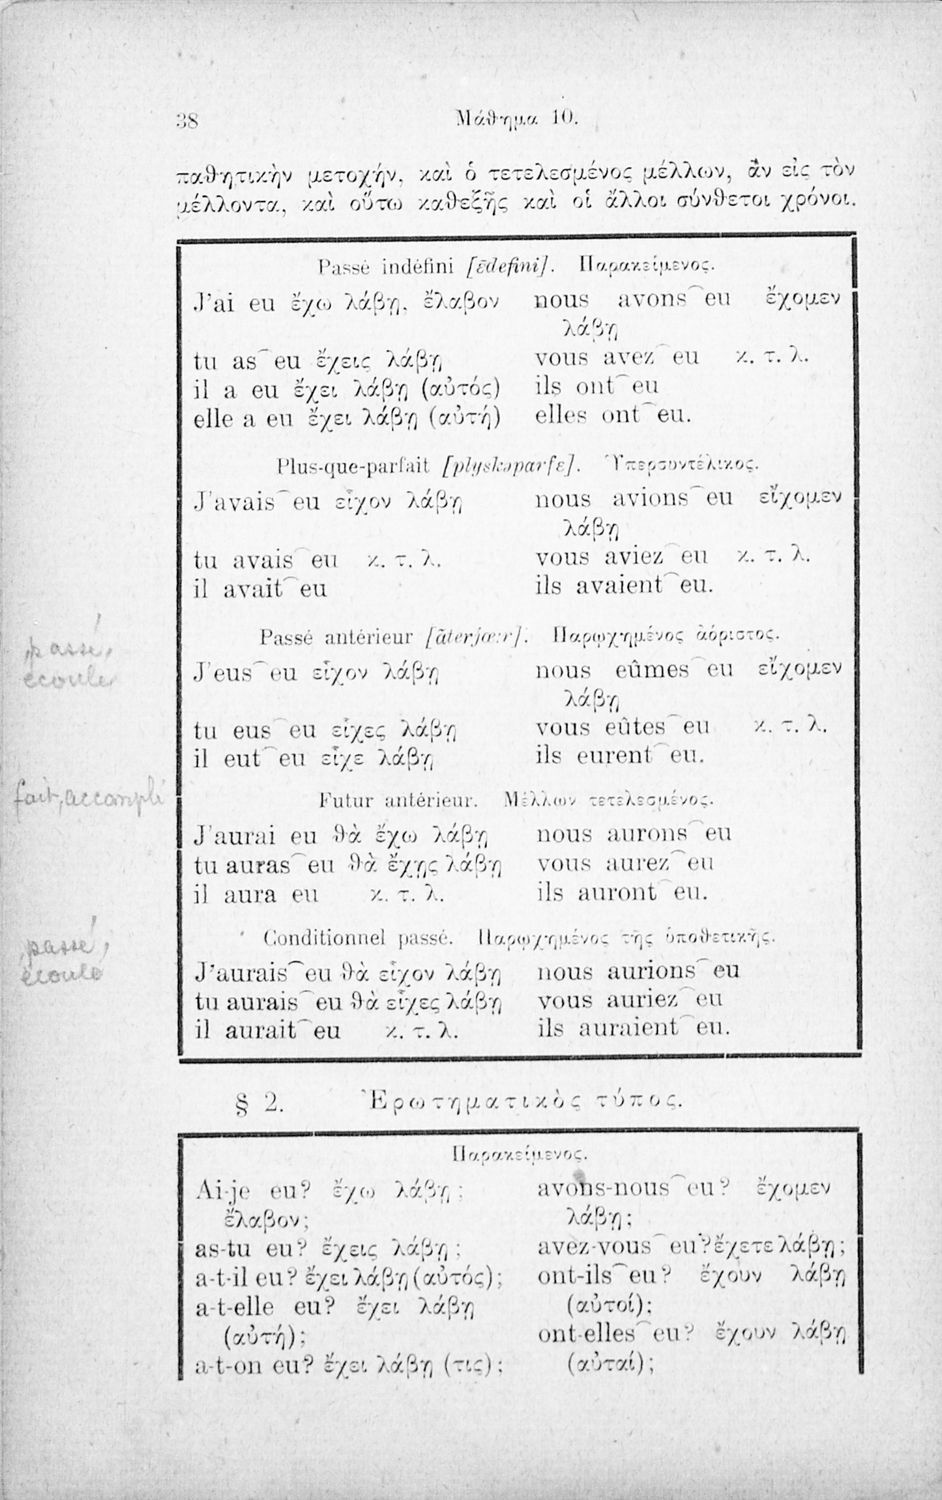 38
Μάθημα 10.
παθητικὴν μετοχήν, καὶ ὁ τετελεσμένος μέλλων, ἂν εἰς τὸν
μέλλοντα, καὶ οὕτω καθεξῆς καὶ οἱ ἄλλοι σύνθετοι χρόνοι.
Passé indéfini [ɛ̃defini]. Παρακείμενος.
J'ai eu ἔχω λάβῃ, ἔλαβον
tu as‿eu ἔχεις λάβῃ
il a eu ἔχει λάβῃ (αὐτός)
elle a eu ἔχει λάβῃ (αὐτή)
nous avons‿eu ἔχομεν
λάβῃ
vous avez‿eu κ. τ. λ.
ils ont‿eu
elles ont‿eu.
Plus-que-parfait [plyskəparfɛ]. Ὑπερσυντέλικος.
J'avais‿eu εἶχον λάβῃ
tu avais‿eu κ. τ. λ.
il avait‿eu
nous avions‿eu εἴχομεν
λάβῃ
vous aviez‿eu κ. τ. λ.
ils avaient‿eu.
Passé antérieur [ãterjœ:r]. Παρῳχημένος ἀόριστος.
J'eus‿eu εἶχον λάβῃ
tu eus‿eu εἶχες λάβῃ
il eut‿eu εἶχε λάβῃ
nous eûmes‿eu εἴχομεν
λάβῃ
vous eûtes‿eu κ. τ. λ.
ils eurent‿eu.
Futur antérieur. Μέλλων τετελεσμένος.
J'aurai eu θὰ ἔχω λάβῃ
tu auras‿eu θὰ ἔχῃς λάβῃ
il aura eu κ. τ. λ.
nous aurons‿eu
vous aurez‿eu
ils auront‿eu.
Conditionnel passé. Παρῳχημένος τῆς ὑποθετικῆς.
J'aurais‿eu θὰ εἶχον λάβῃ
tu aurais‿eu θὰ εἶχες λάβῃ
il aurait‿eu κ. τ. λ.
nous aurions‿eu
vous auriez‿eu
ils auraient‿eu.
passé,
écoulé
fait, accompli
passé,
écoulé
§ 2. Ἐρωτηματικὸς τύπος.
Παρακείμενος.
Ai-je eu? ἔχω λάβῃ;
ἔλαβον;
as-tu eu? ἔχεις λάβῃ;
a-t-il eu? ἔχει λάβῃ (αὐτός);
a-t-elle eu? ἔχει λάβῃ
(αὐτή);
a-t-on eu? ἔχει λάβῃ (τις);
avons-nous‿eu? ἔχομεν
λάβῃ;
avez-vous‿eu? ἔχετε λάβῃ;
ont-ils‿eu? ἔχουν λάβῃ
(αὐτοί);
ont-elles‿eu? ἔχουν λάβῃ
(αὐταί);